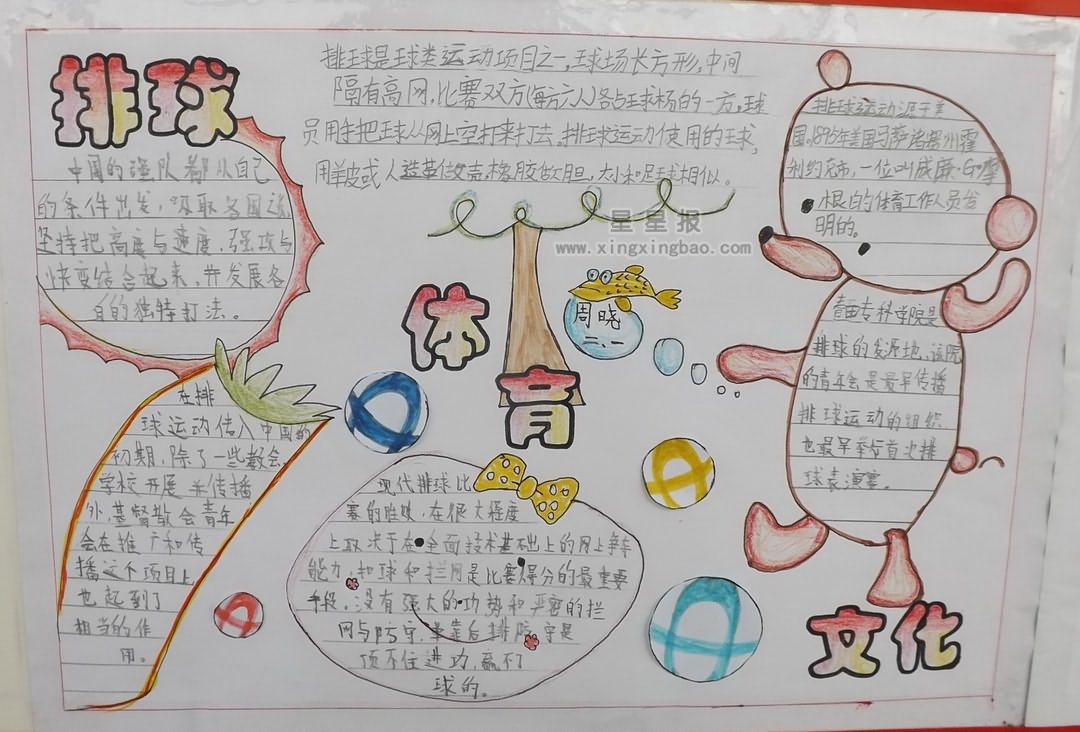 排球
排球是球类运动项目之一,球场长方形,中间
隔有高网,比赛双方(每方六人)各占球场的一方,球
员用手把球从网上空打来打去。排球运动使用的球,
用羊皮或人造革做壳,橡胶做胆,大小和足球相似。
中国的强队都从自己
的条件出发,吸取各国
坚持把高度与速度,强攻与
快变结合起来,并发展各
自的独特打法。
在排
球运动传入中国的
初期,除了一些教会
学校开展并传播
外,基督教会青年
会在推广和传
播这个项目上
也起到了
相当的作
用。
体
育
星星报
www.xingxingbao.com
周晓
二、一
现代排球比
赛的胜败,在很大程度
上取决于在全面技术基础上的网上争夺
能力,扣球和拦网是比赛得分的最重要
手段,没有强大的攻势和严密的拦
网与防守,单靠后排防守是
顶不住进攻,赢不了
球的。
排球运动源于美
国。1895年美国马萨诸塞州霍
利约克市,一位叫威廉·G·摩
根的体育工作人员发
明的。
春田专科学院是
排球的发源地,该院
的青年会是最早传播
排球运动的组织
也最早举行首次排
球表演赛。
文化